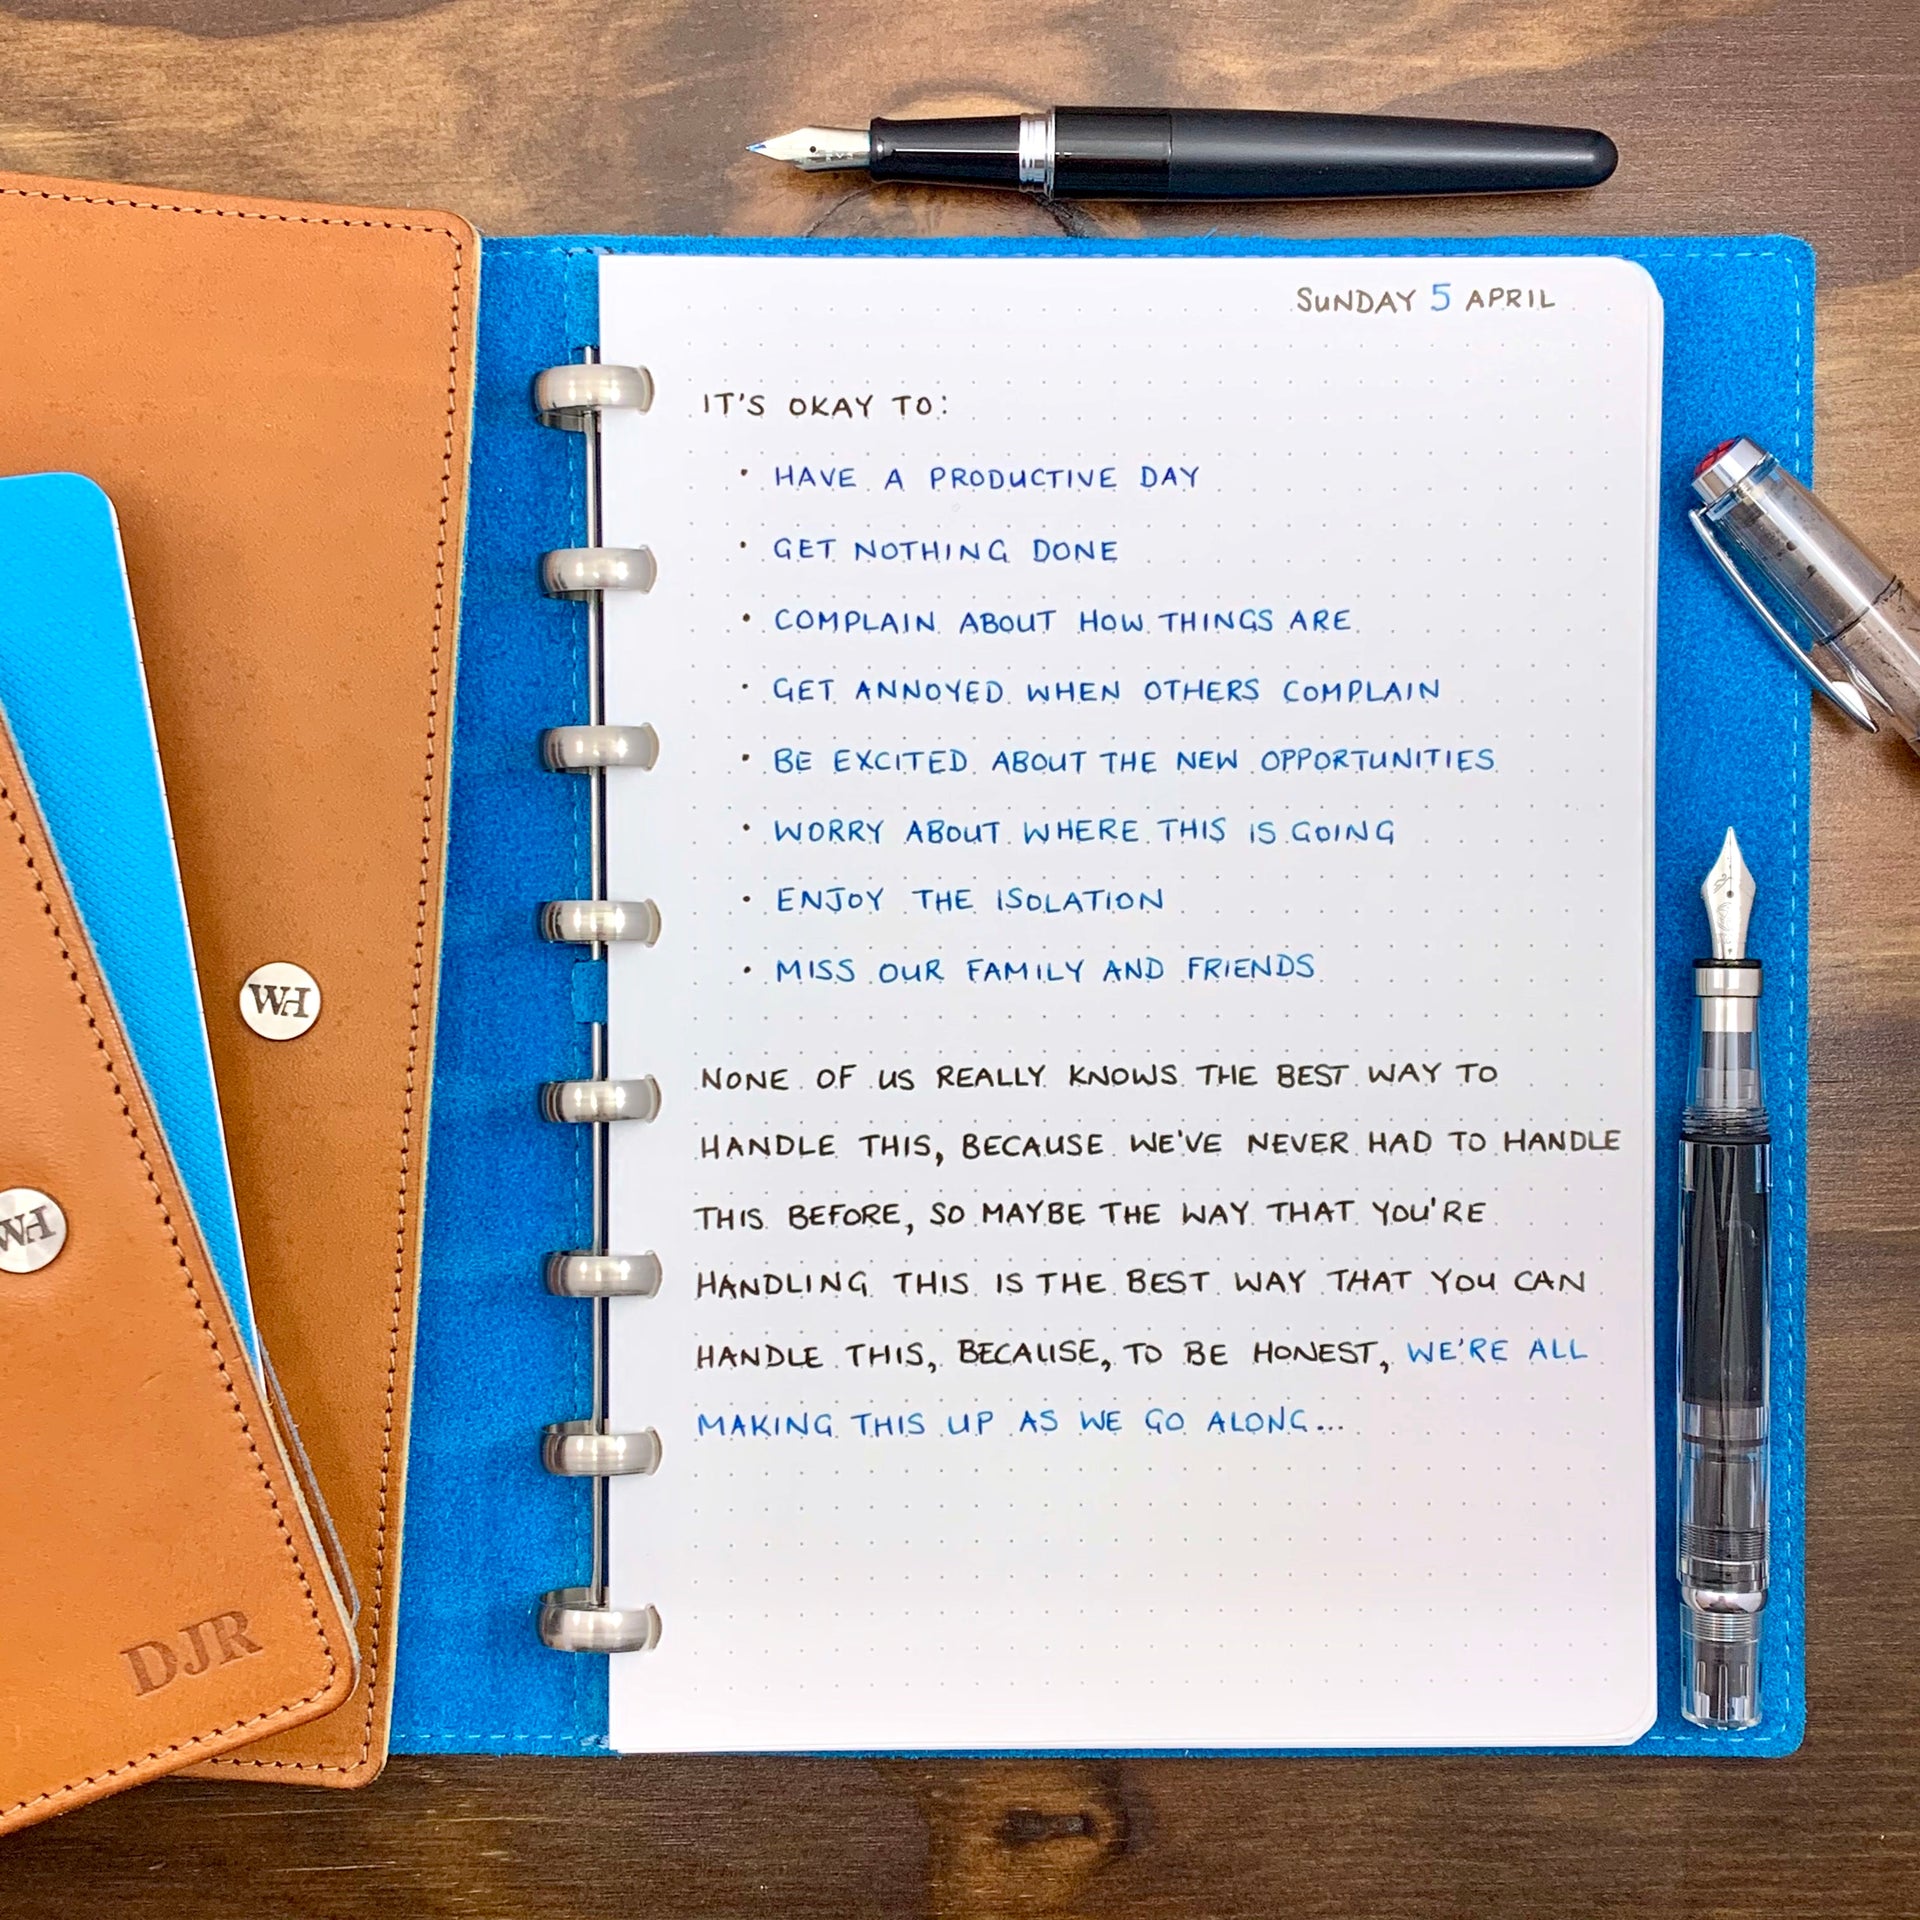 SUNDAY 5 APRIL
IT'S OKAY TO:
• HAVE A PRODUCTIVE DAY
• GET NOTHING DONE
• COMPLAIN ABOUT HOW THINGS ARE
• GET ANNOYED WHEN OTHERS COMPLAIN
• BE EXCITED ABOUT THE NEW OPPORTUNITIES
• WORRY ABOUT WHERE THIS IS GOING
• ENJOY THE ISOLATION
• MISS OUR FAMILY AND FRIENDS
NONE OF US REALLY KNOWS THE BEST WAY TO
HANDLE THIS, BECAUSE WE'VE NEVER HAD TO HANDLE
THIS BEFORE, SO MAYBE THE WAY THAT YOU'RE
HANDLING THIS IS THE BEST WAY THAT YOU CAN
HANDLE THIS, BECAUSE, TO BE HONEST, WE'RE ALL
MAKING THIS UP AS WE GO ALONG...
WH
WH
DJR